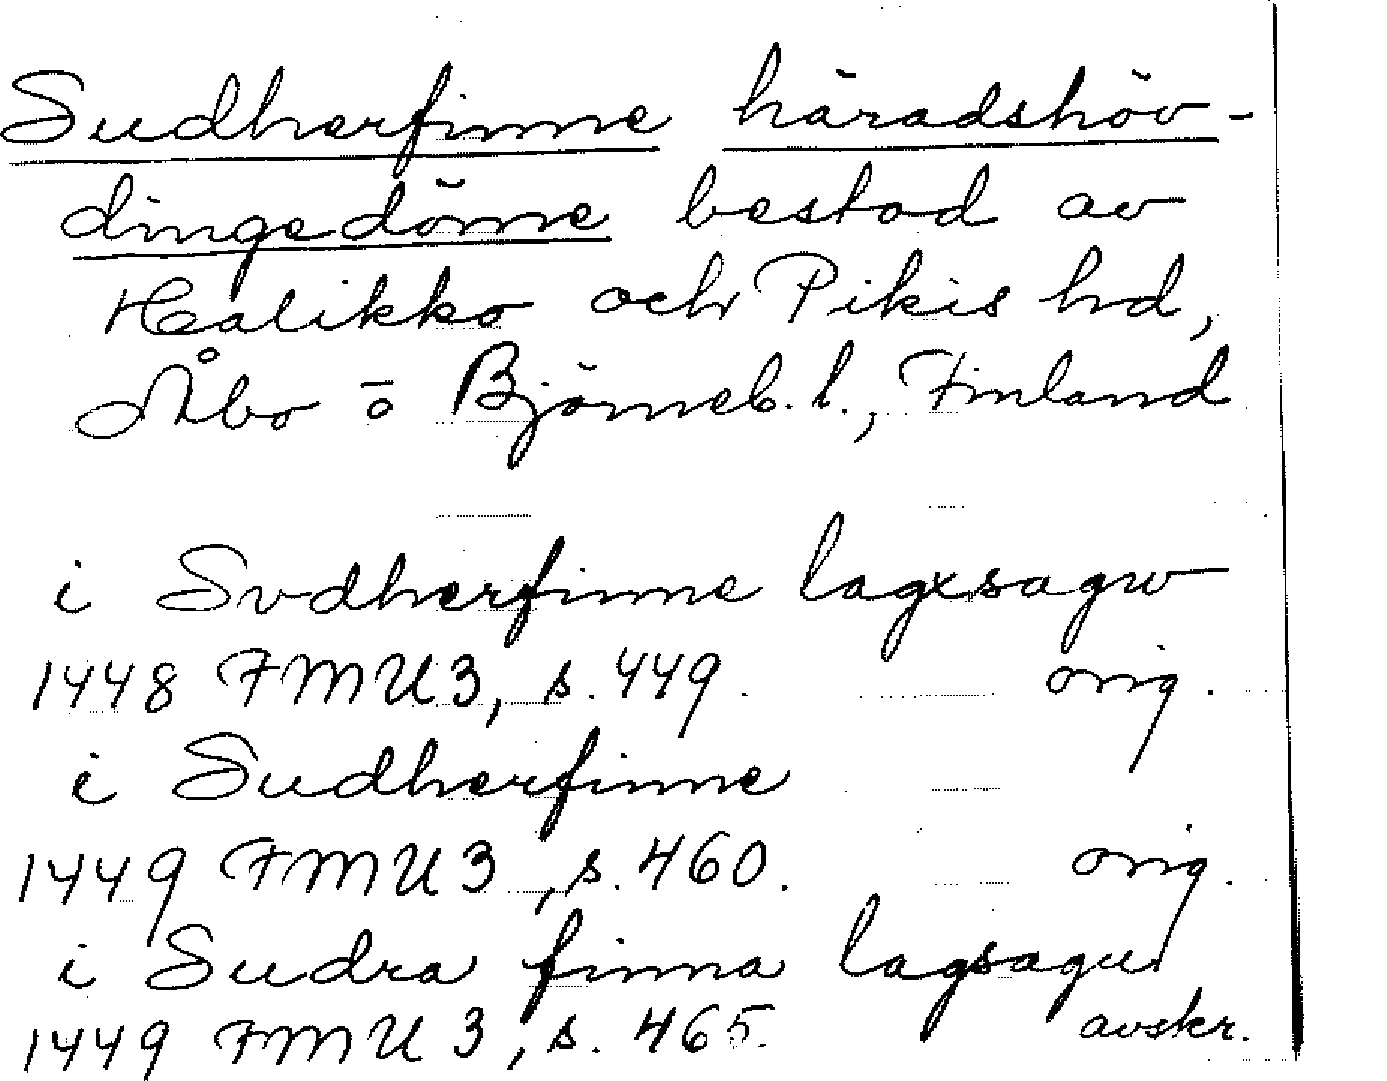 Sudherfinne häradshöv-
dingedöme bestod av
Halikko och Pikis hd,
Åbo o Björneb. l., Finland
i Svdherfinne lagxsagw
1448 FMU 3, s. 449. orig.
i Sudherfinne
1449 FMU 3, s. 460. orig.
i Sudra finna lagsagu
1449 FMU 3, s. 465. avskr.